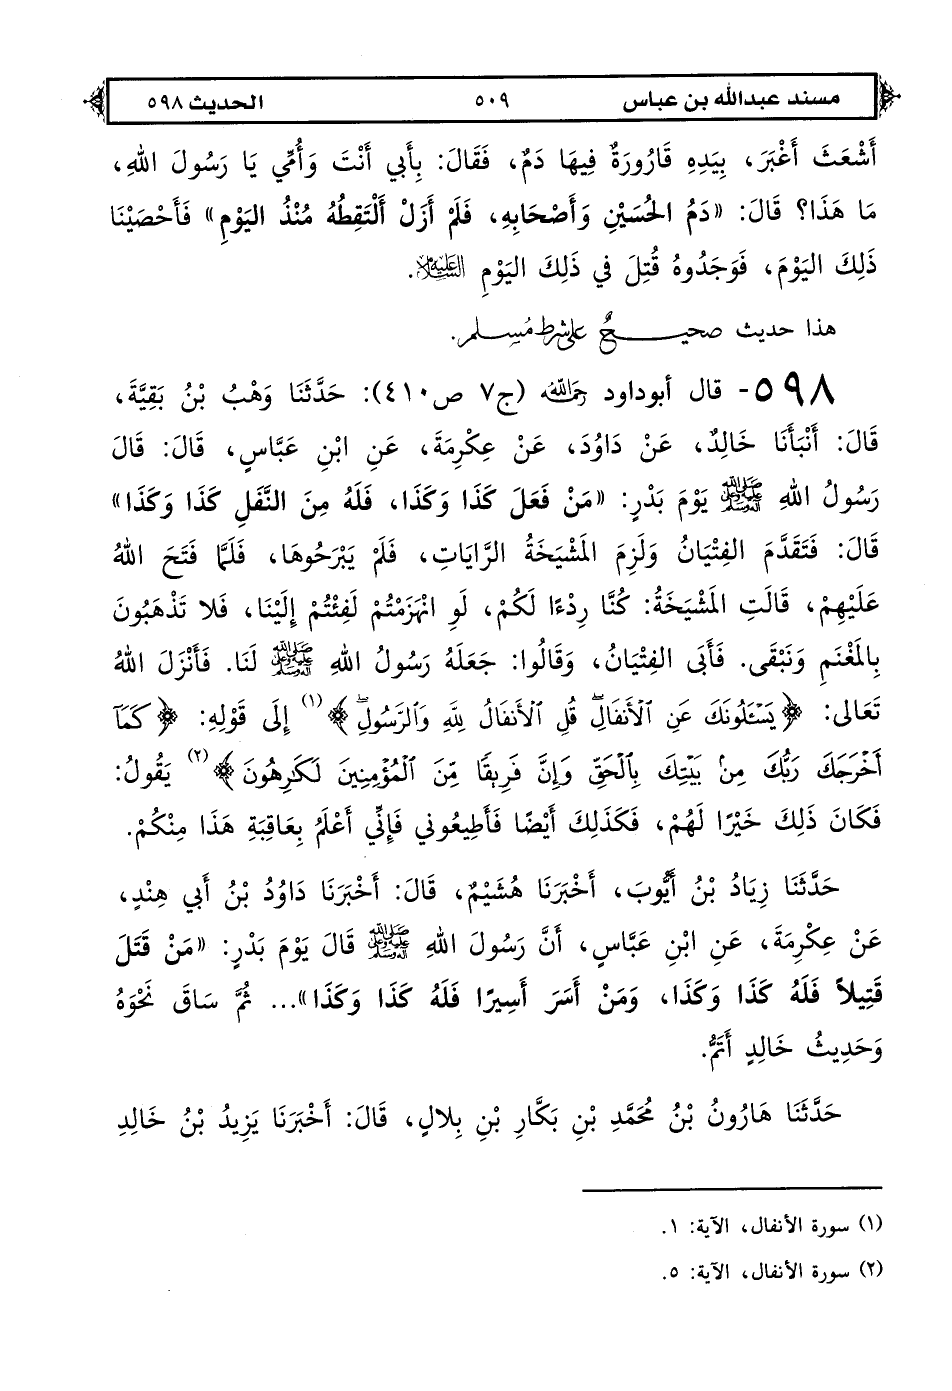 مسند عبدالله بن عباس ٥٠٩ الحديث ٥٩٨
أَشْعَثَ أَغْبَرَ، بِيَدِهِ قَارُورَةٌ فِيهَا دَمٌ، فَقَالَ: بِأَبِي أَنْتَ وَأُمِّي يَا رَسُولَ اللهِ،
مَا هَذَا؟ قَالَ: «دَمُ الحُسَيْنِ وَأَصْحَابِهِ، فَلَمْ أَزَلْ أَلْتَقِطُهُ مُنْذُ اليَوْمِ» فَأَحْصَيْنَا
ذَلِكَ اليَوْمَ، فَوَجَدُوهُ قُتِلَ فِي ذَلِكَ اليَوْمِ عليه السلام.
هذا حديث صحيحٌ على شرط مُسلم.
٥٩٨- قال أبوداود رحمه الله (ج٧ ص٤١٠): حَدَّثَنَا وَهْبُ بْنُ بَقِيَّةَ،
قَالَ: أَنْبَأَنَا خَالِدٌ، عَنْ دَاوُدَ، عَنْ عِكْرِمَةَ، عَنِ ابْنِ عَبَّاسٍ، قَالَ: قَالَ
رَسُولُ اللهِ ﷺ يَوْمَ بَدْرٍ: «مَنْ فَعَلَ كَذَا وَكَذَا، فَلَهُ مِنَ النَّفَلِ كَذَا وَكَذَا»
قَالَ: فَتَقَدَّمَ الفِتْيَانُ وَلَزِمَ المَشْيَخَةُ الرَّايَاتِ، فَلَمْ يَبْرَحُوهَا، فَلَمَّا فَتَحَ اللهُ
عَلَيْهِمْ، قَالَتِ المَشْيَخَةُ: كُنَّا رِدْءًا لَكُمْ، لَوِ انْهَزَمْتُمْ لَفِئْتُمْ إِلَيْنَا، فَلا تَذْهَبُونَ
بِالمَغْنَمِ وَنَبْقَى. فَأَبَى الفِتْيَانُ، وَقَالُوا: جَعَلَهُ رَسُولُ اللهِ ﷺ لَنَا. فَأَنْزَلَ اللهُ
تَعَالَى: ﴿يَسْـَٔلُونَكَ عَنِ ٱلْأَنفَالِۖ قُلِ ٱلْأَنفَالُ لِلَّهِ وَٱلرَّسُولِۖ﴾(١) إِلَى قَوْلِهِ: ﴿كَمَآ
أَخْرَجَكَ رَبُّكَ مِنۢ بَيْتِكَ بِٱلْحَقِّ وَإِنَّ فَرِيقًا مِّنَ ٱلْمُؤْمِنِينَ لَكَٰرِهُونَ﴾(٢) يَقُولُ:
فَكَانَ ذَلِكَ خَيْرًا لَهُمْ، فَكَذَلِكَ أَيْضًا فَأَطِيعُونِي فَإِنِّي أَعْلَمُ بِعَاقِبَةِ هَذَا مِنْكُمْ.
حَدَّثَنَا زِيَادُ بْنُ أَيُّوبَ، أَخْبَرَنَا هُشَيْمٌ، قَالَ: أَخْبَرَنَا دَاوُدُ بْنُ أَبِي هِنْدٍ،
عَنْ عِكْرِمَةَ، عَنِ ابْنِ عَبَّاسٍ، أَنَّ رَسُولَ اللهِ ﷺ قَالَ يَوْمَ بَدْرٍ: «مَنْ قَتَلَ
قَتِيلاً فَلَهُ كَذَا وَكَذَا، وَمَنْ أَسَرَ أَسِيرًا فَلَهُ كَذَا وَكَذَا»... ثُمَّ سَاقَ نَحْوَهُ
وَحَدِيثُ خَالِدٍ أَتَمُّ.
حَدَّثَنَا هَارُونُ بْنُ مُحَمَّدِ بْنِ بَكَّارِ بْنِ بِلالٍ، قَالَ: أَخْبَرَنَا يَزِيدُ بْنُ خَالِدِ
(١) سورة الأنفال، الآية: ١.
(٢) سورة الأنفال، الآية: ٥.